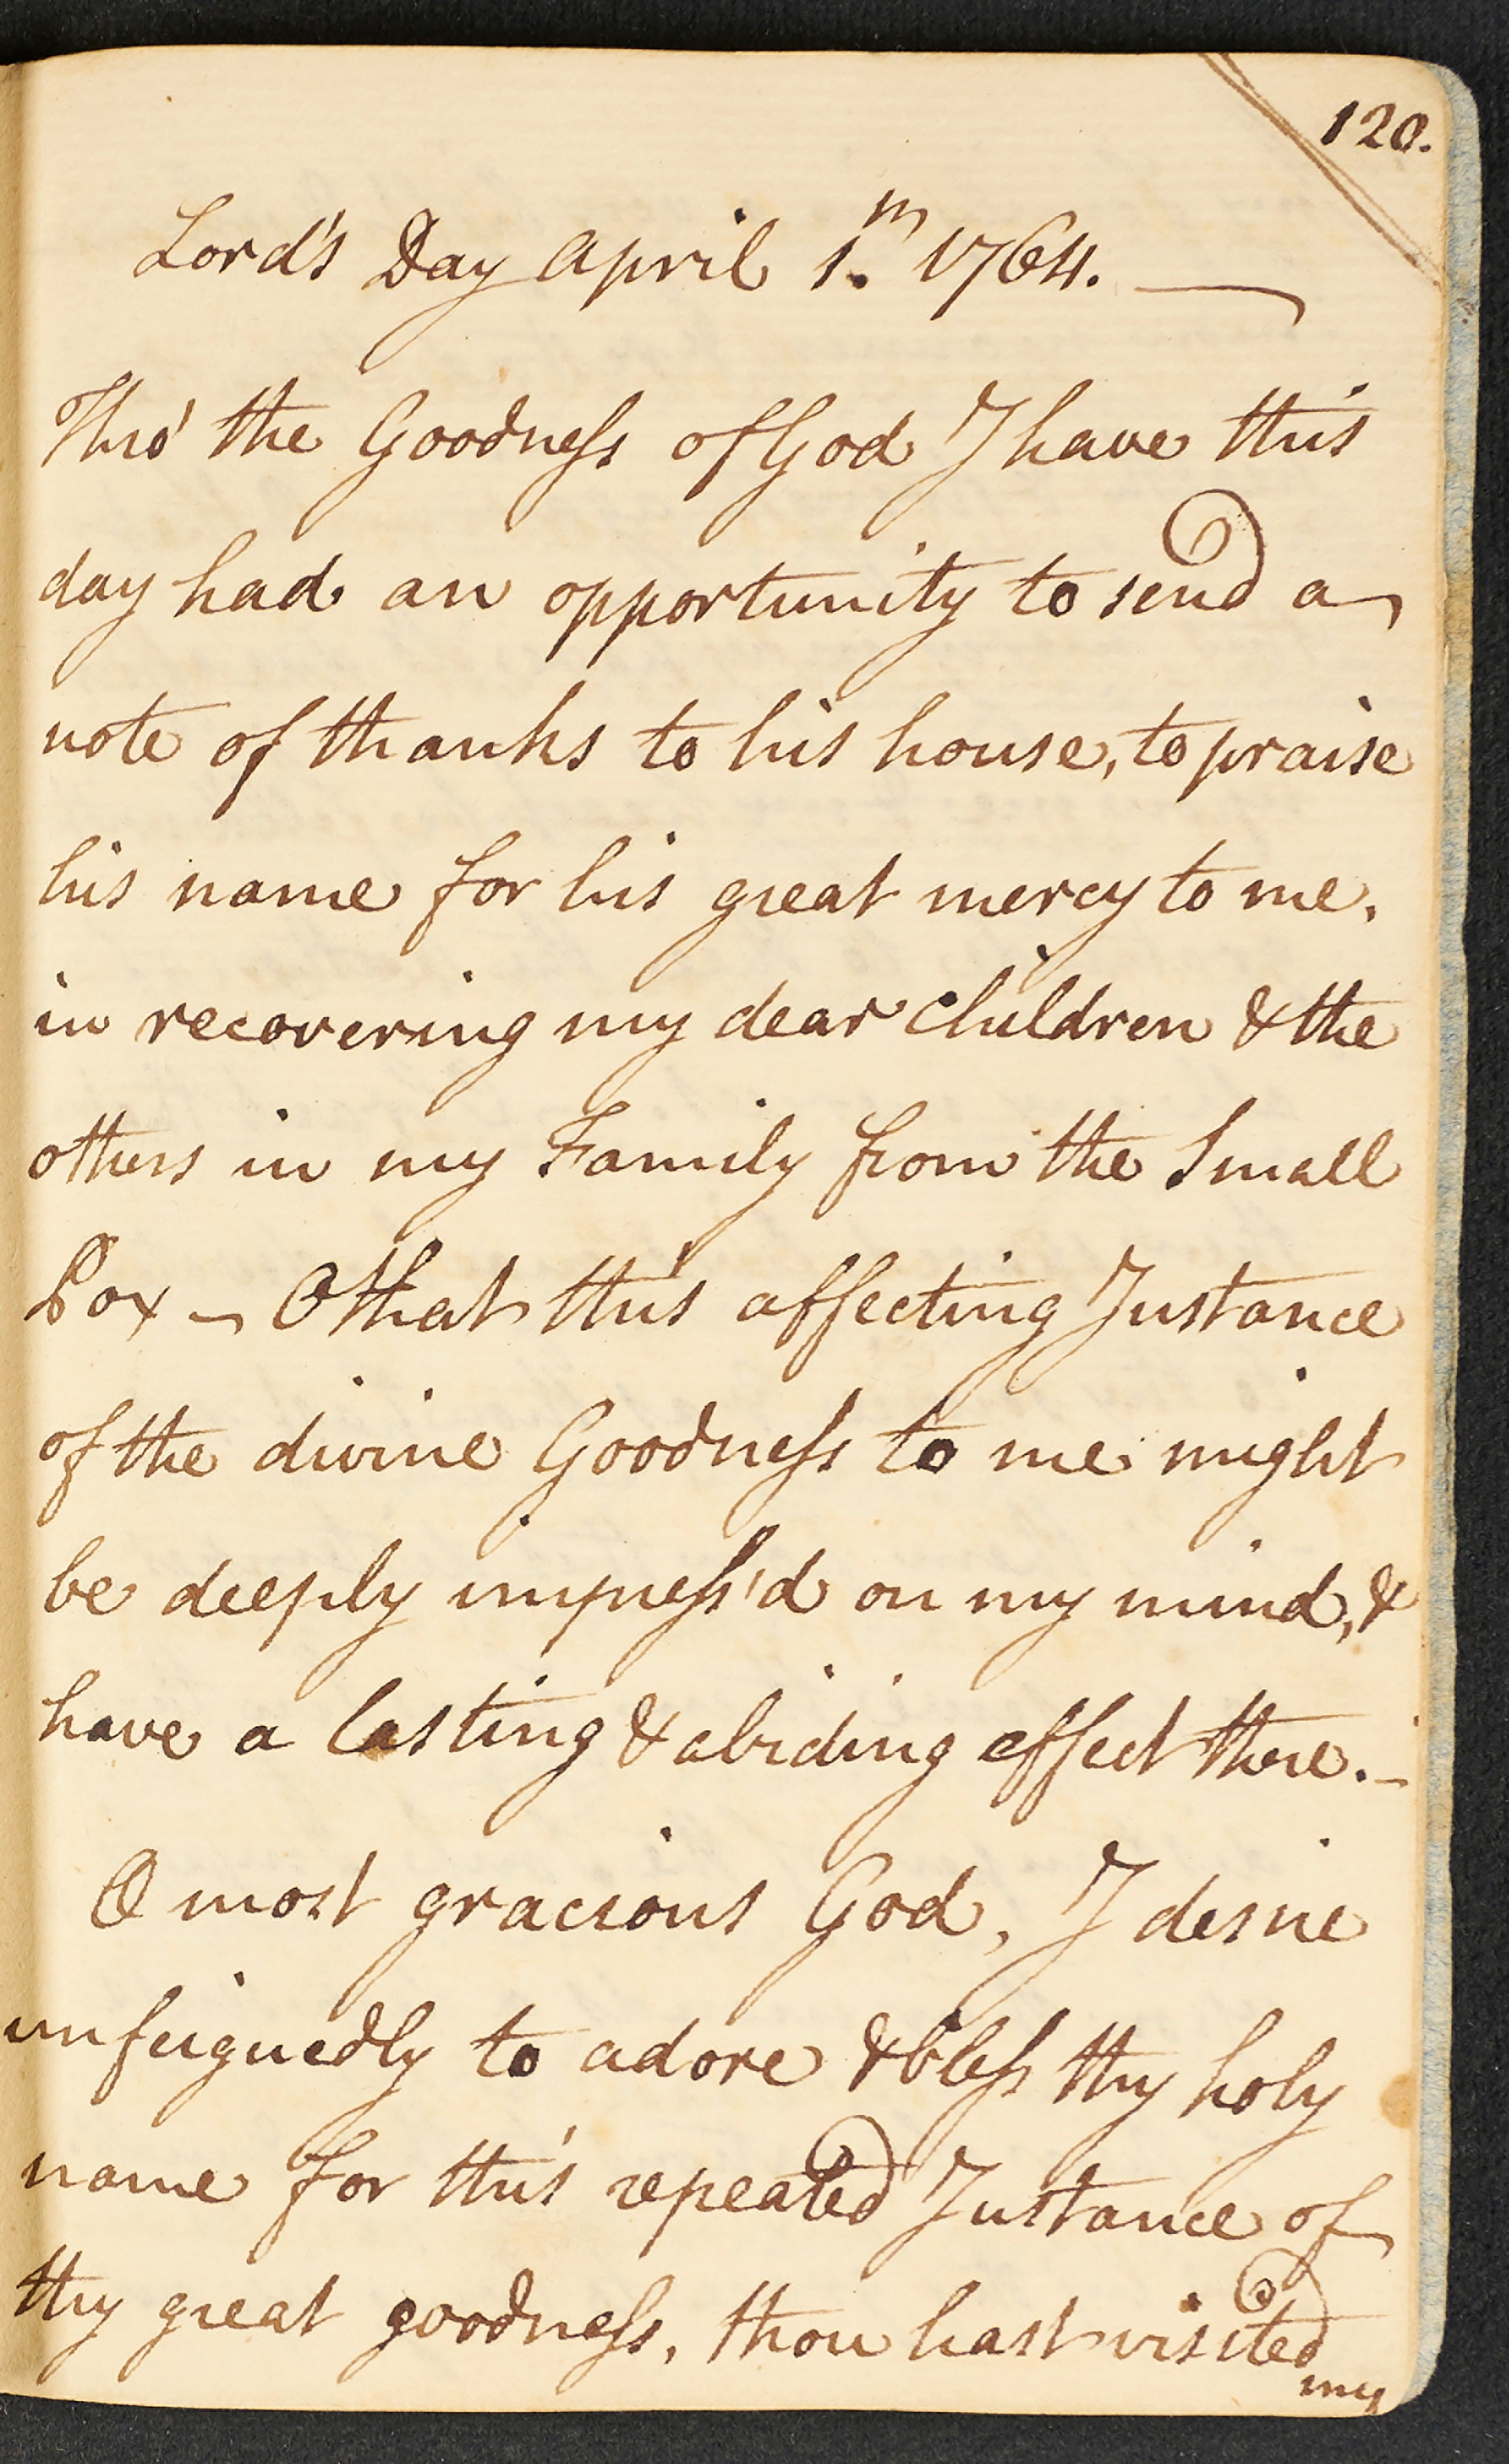 120.
Lord's Day April 1.m 1764.
Thro' the Goodneſs of God I have this
day had an opportunity to send a
note of thanks to his house, to praise
his name for his great mercy to me,
in recovering my dear Children & the
others in my Family from the Small
Pox - O that this affecting Instance
of the divine Goodneſs to me might
be deeply impreſs'd on my mind, &
have a lasting & abiding effect there. -
O most gracious God, I desire
unfeignedly to adore & bleſs thy holy
name for this repeated Instance of
thy great goodneſs, thou hast visited
my